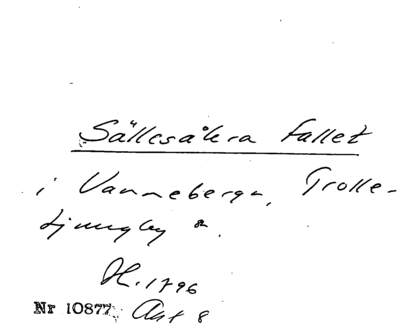 Sällesåkra fallet
i Vanneberga, Trolle-
Ljungby sn.
H. 1796
Nr 10877. Akt 8